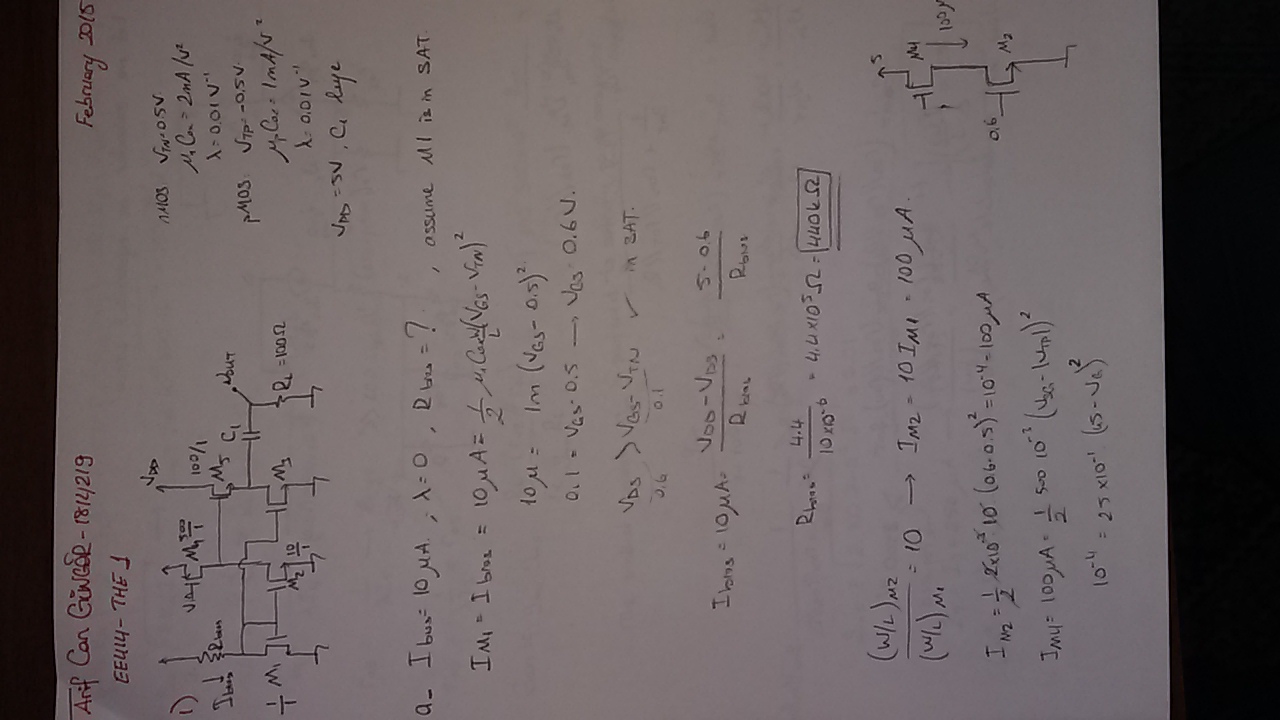 Arif Can GÜNGÖR - 1814219
February 2015
EE414 - THE 1
1)
VDD
Ibias
Rbias
M4
M5
100/1
C1
VOUT
RL = 100Ω
1/1 M1
M2 10/1
M3
nMOS VTN=0.5V
μnCox = 2mA/V²
λ = 0.01V⁻¹
pMOS VTP = -0.5V
μpCox = 1mA/V²
λ = 0.01V⁻¹
VDD = 5V, C1 large
a- Ibias = 10μA, λ=0, Rbias = ? , assume M1 is in SAT.
IM1 = Ibias = 10μA = 1/2 μCox W/L (VGS - VTN)²
10μ = 1m (VGS - 0.5)²
0.1 = VGS - 0.5 → VGS = 0.6V.
VDS > VGS - VTN ✓ in SAT.
0.6 0.1
Ibias = 10μA = (VDD - VDS)/Rbias = (5 - 0.6)/Rbias
Rbias = 4.4/(10x10⁻⁶) = 4.4x10⁵Ω = 440kΩ
(W/L)M2/(W/L)M1 = 10 → IM2 = 10 IM1 = 100μA.
IM2 = 1/2 2x10⁻³ 10 (0.6-0.5)² = 10⁻⁴ = 100μA
IM4 = 100μA = 1/2 500 10⁻³ (VSG - |VTP|)²
5
M4
100μ
0.6
M2